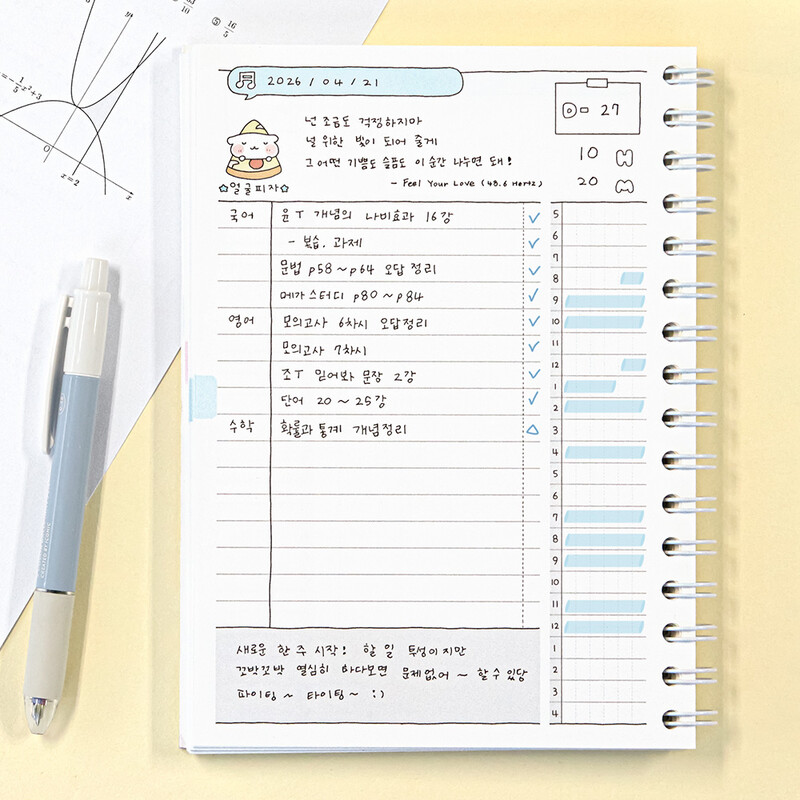 2026 / 04 / 21
D - 27
넌 조금도 걱정하지마
널 위한 빛이 되어 줄게
그 어떤 기쁨도 슬픔도 이 순간 나누면 돼!
- Feel Your Love (48.6 Hertz)
☆얼굴피자☆
10 H
20 M
국어 윤T 개념의 나비효과 16강 ✓
- 복습, 과제 ✓
문법 p58 ~ p64 오답 정리 ✓
메가스터디 p80 ~ p84 ✓
영어 모의고사 6차시 오답정리 ✓
모의고사 7차시 ✓
조T 믿어봐 문장 2강 ✓
단어 20 ~ 25강 ✓
수학 확률과 통계 개념정리 △
5
6
7
8
9
10
11
12
1
2
3
4
5
6
7
8
9
10
11
12
1
2
3
4
새로운 한 주 시작! 할 일 투성이지만
꼬박꼬박 열심히 하다보면 문제없어 ~ 할 수 있당
파이팅 ~ 타이팅 ~ :)
y
x
0
x=2
⑤ 16/5